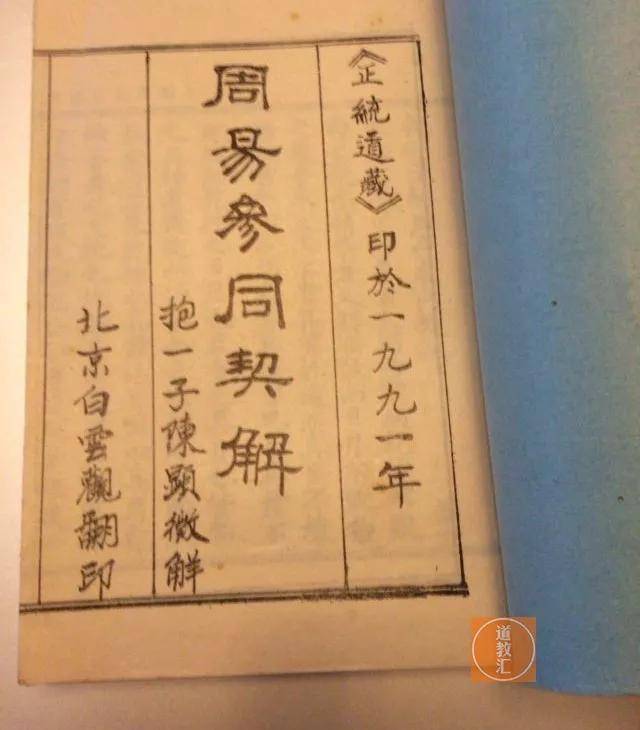 《正統道藏》印於一九九一年
周易參同契解
抱一子陳顯微解
北京白雲觀翻印
道教汇